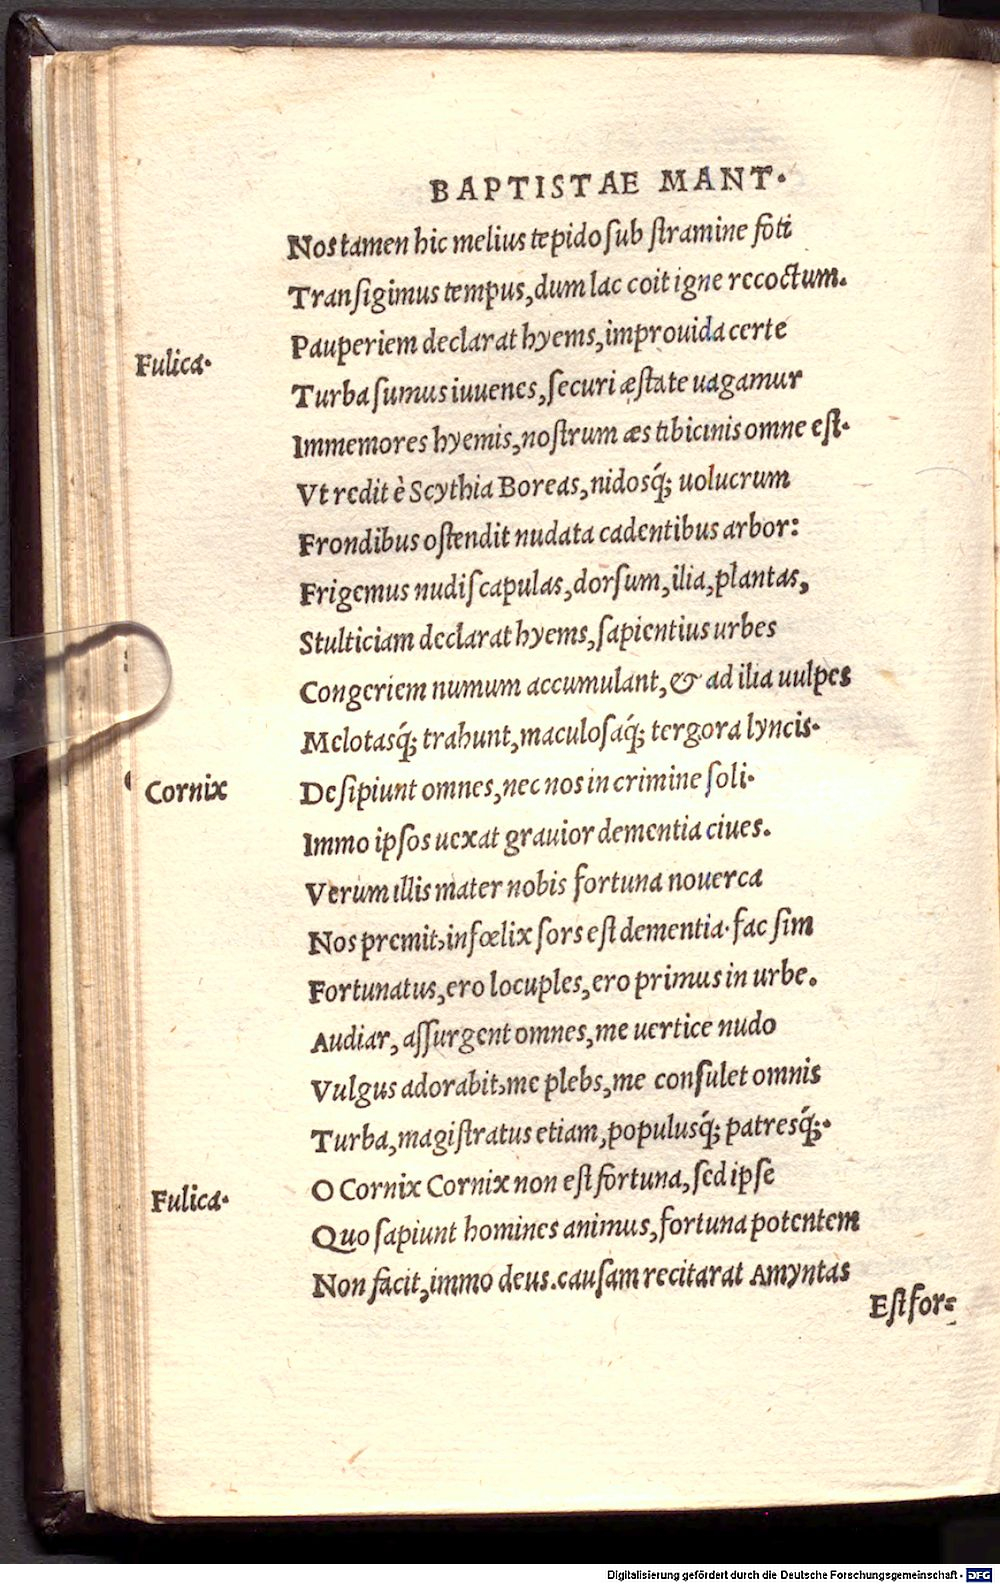 BAPTISTAE MANT.
Nos tamen hic melius tepido sub ſtramine foti
Tranſigimus tempus, dum lac coit igne recoctum.
Fulica.
Pauperiem declarat hyems, improuida certe
Turba ſumus iuuenes, ſecuri æſtate uagamur
Immemores hyemis, noſtrum æs tibicinis omne eſt.
Vt redit è Scythia Boreas, nidosq́; uolucrum
Frondibus oſtendit nudata cadentibus arbor:
Frigemus nudi ſcapulas, dorſum, ilia, plantas,
Stulticiam declarat hyems, ſapientius urbes
Congeriem numum accumulant, & ad ilia uulpes
Melotasq́; trahunt, maculoſaq́; tergora lyncis.
Cornix
Deſipiunt omnes, nec nos in crimine ſoli.
Immo ipſos uexat grauior dementia ciues.
Verum illis mater nobis fortuna nouerca
Nos premit, infœlix ſors eſt dementia. fac ſim
Fortunatus, ero locuples, ero primus in urbe.
Audiar, aſſurgent omnes, me uertice nudo
Vulgus adorabit, me plebs, me conſulet omnis
Turba, magiſtratus etiam, populusq́; patresq́;.
Fulica.
O Cornix Cornix non eſt fortuna, ſed ipſe
Quo ſapiunt homines animus, fortuna potentem
Non facit, immo deus. cauſam recitarat Amyntas
Eſt for=
Digitalisierung gefördert durch die Deutsche Forschungsgemeinschaft - DFG